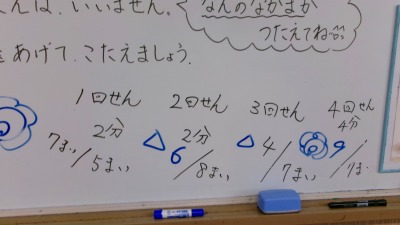 んは、いいません。
なんのなかまか
つたえてね
をあげて、こたえましょう。
1回せん 2回せん 3回せん 4回せん
2分 2分 4分
7まい/5まい 6/8まい 4/7まい 9/7ま